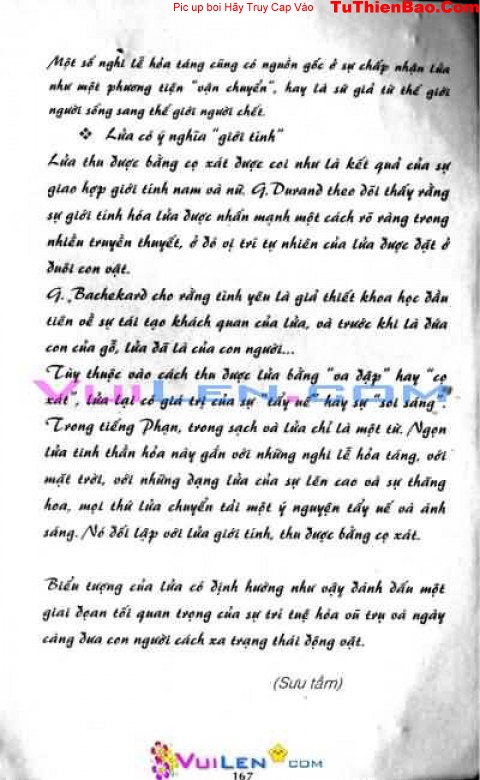 Pic up boi Hãy Truy Cap Vào TuThienBao.Com
Một số nghi lễ hỏa táng cũng có nguồn gốc ở sự chấp nhận lửa
như một phương tiện "vận chuyển", hay là sứ giả từ thế giới
người sống sang thế giới người chết.
❖ Lửa có ý nghĩa "giới tính"
Lửa thu được bằng cọ xát được coi như là kết quả của sự
giao hợp giới tính nam và nữ. G.Durand theo dõi thấy rằng
sự giới tính hóa lửa được nhấn mạnh một cách rõ ràng trong
nhiều truyền thuyết, ở đó vị trí tự nhiên của lửa được đặt ở
đuôi con vật.
G. Bachekard cho rằng tình yêu là giả thiết khoa học đầu
tiên về sự tái tạo khách quan của lửa, và trước khi là đứa
con của gỗ, lửa đã là của con người...
Tùy thuộc vào cách thu được lửa bằng "va đập" hay "cọ
xát", lửa lại có giá trị của sự "tẩy uế" hay sự "soi sáng".
VuiLen.com
Trong tiếng Phạn, trong sạch và lửa chỉ là một từ. Ngọn
lửa tinh thần hóa này gắn với những nghi lễ hỏa táng, với
mặt trời, với những dạng lửa của sự lên cao và sự thăng
hoa, mọi thứ lửa chuyển tải một ý nguyện tẩy uế và ánh
sáng. Nó đối lập với lửa giới tính, thu được bằng cọ xát.
Biểu tượng của lửa có định hướng như vậy đánh dấu một
giai đoạn tối quan trọng của sự trí tuệ hóa vũ trụ và ngày
càng đưa con người cách xa trạng thái động vật.
(Sưu tầm)
VuiLen.com
167